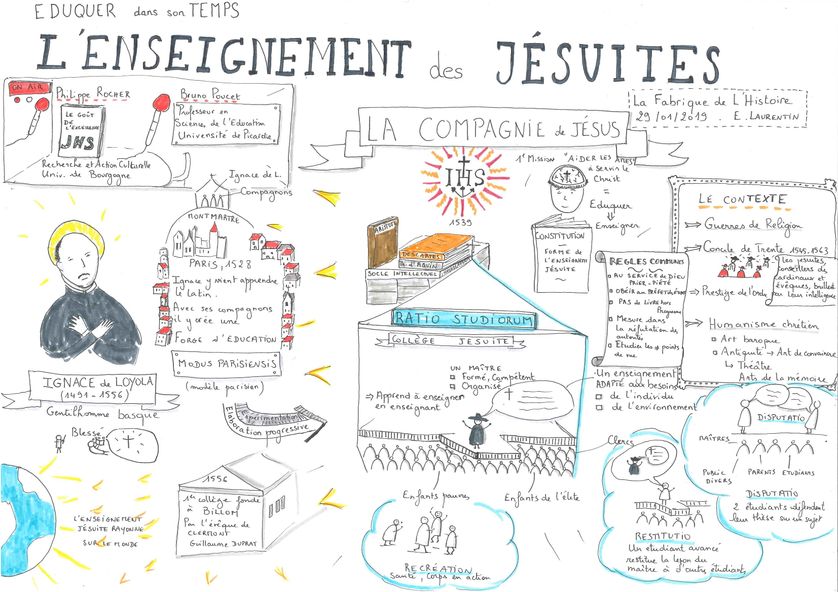 EDUQUER dans son TEMPS
L'ENSEIGNEMENT des JÉSUITES
ON AIR
Philippe ROCHER
LE GOÛT
DE
L'EXCELLENCE
JHS
Recherche et Action Culturelle
Univ. de Bourgogne
Bruno Poucet
Professeur en
Science de l'Education
Université de Picardie
La Fabrique de L'Histoire
29/01/2019 . E. LAURENTIN
LA COMPAGNIE de JÉSUS
IHS
1539
1e Mission "AIDER LES AMES
à SERVIR LE
Christ"
=
Eduquer
Enseigner
CONSTITUTION
FORME de
L'ENSEIGNEMENT
JÉSUITE
Ignace de L.
Compagnons
MONTMARTRE
PARIS, 1528
Ignace y vient apprendre
le latin.
Avec ses compagnons
il y crée une
FORGE d'EDUCATION
MODUS PARISIENSIS
(modèle parisien)
Expérimentation
Elaboration progressive
1556
1er collège fondé
à BILLOM
Par l'évêque de
CLERMONT
Guillaume DUPRAT
IGNACE de LOYOLA
(1491 - 1556)
Gentilhomme basque
Blessé
L'ENSEIGNEMENT
JÉSUITE RAYONNE
SUR LE MONDE
ARISTOTE
DESCARTES
T. D'AQUIN
SOCLE INTELLECTUEL
RATIO STUDIORUM
COLLÈGE JESUITE
UN MAÎTRE
Formé, Compétent
Organisé
⇒ Apprend à enseigner
en enseignant
Enfants pauvres
Enfants de l'élite
RECRÉATION
Santé, corps en action
REGLES COMMUNES
AU SERVICE de DIEU
PRIER - PIÉTÉ
OBÉIR au PRÉFET
PAS de LIVRE HORS
Programme
Mesure dans
la réfutation des
autorités
Etudier les points
de vue.
Un enseignement
ADAPTÉ aux besoins
de l'individu
de l'environnement
LE CONTEXTE
⇒ Guerres de Religion
⇒ Concile de Trente 1545, 1563
⇒ Prestige de l'ordre
Les jésuites,
conseillers de
cardinaux et
évêques, brillent
par leur intelligence
⇒ Humanisme chrétien
Art baroque
Antiquité → Art de convaincre
↳ Théâtre
Arts de la mémoire
Clercs
RESTITUTIO
Un étudiant avancé
restitue la leçon du
maître à d'autre étudiant
DISPUTATIO
MAÎTRES
PUBLIC
DIVERS
PARENTS
ETUDIANTS
DISPUTATIO
2 étudiants défendent
leur thèse sur un sujet